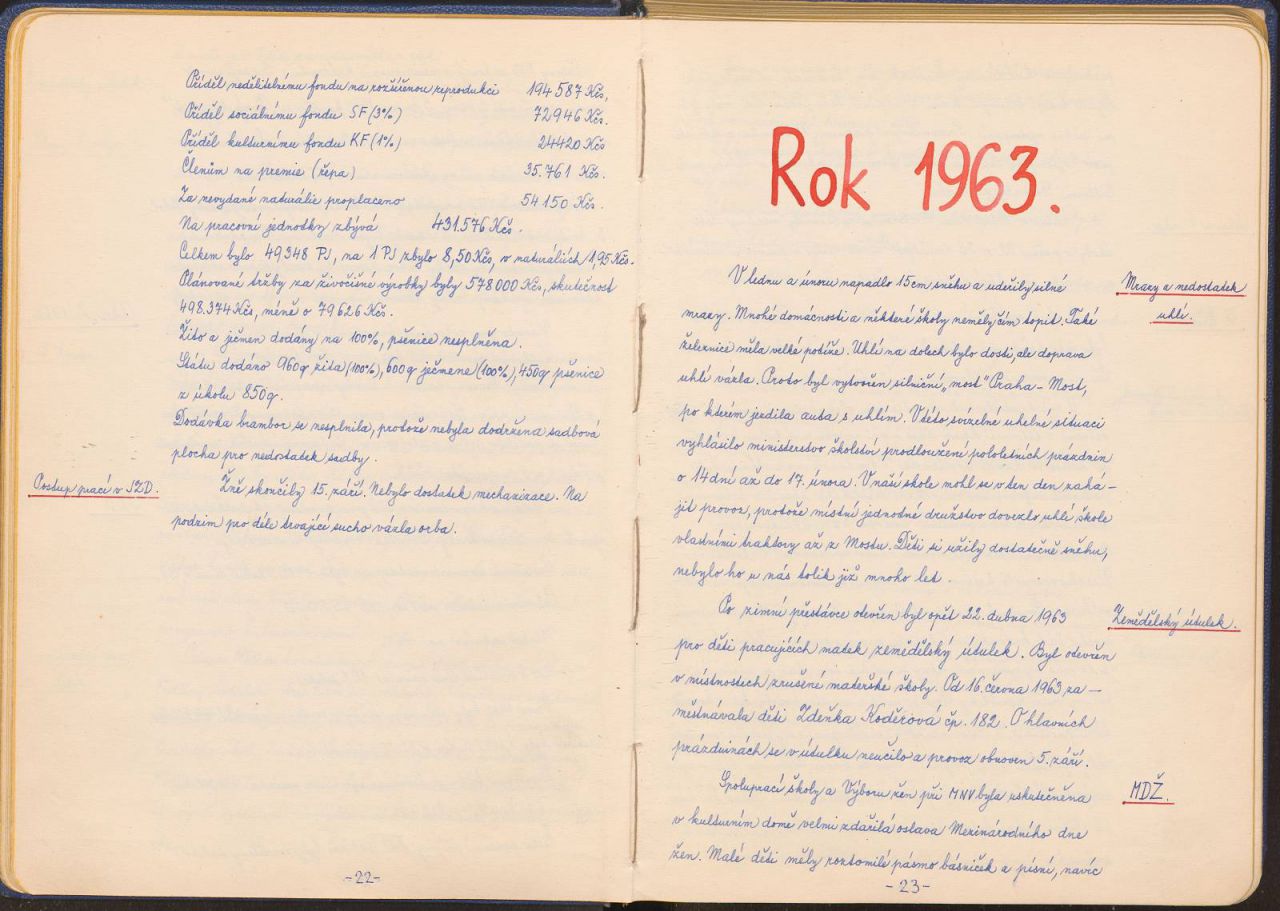 Příděl nedělitelnému fondu na rozšířenou reprodukci 194587 Kčs,
Příděl sociálnímu fondu SF (3%) 72946 Kčs.
Příděl kulturnímu fondu KF (1%) 24420 Kčs
Členům na premie (řepa) 35.761 Kčs.
Za nevydané naturálie proplaceno 54150 Kčs.
Na pracovní jednotky zbývá 431.576 Kčs.
Celkem bylo 49348 PJ, na 1 PJ zbylo 8,50 Kčs, v naturáliích 1,95 Kčs.
Plánované tržby za živočišné výrobky byly 578000 Kčs, skutečnost
498.374 Kčs, méně o 79626 Kčs.
Žito a ječmen dodány na 100%, pšenice nesplněna.
Státu dodáno 960q žita (100%), 600q ječmene (100%), 450q pšenice
z úkolu 850q.
Dodávka brambor se nesplnila, protože nebyla dodržena sadbová
plocha pro nedostatek sadby.
Postup prací v JZD.
Žně skončily 15. září. Nebylo dostatek mechanizace. Na
podzim pro déle trvající sucho vázla orba.
-22-
Rok 1963.
V lednu a únoru napadlo 15cm sněhu a udeřily silné
Mrazy a nedostatek
uhlí.
mrazy. Mnohé domácnosti a některé školy neměly čím topit. Také
železnice měla velké potíže. Uhlí na dolech bylo dosti, ale doprava
uhlí vázla. Proto byl vytvořen silniční „most" Praha - Most,
po kterém jezdila auta s uhlím. V této svízelné uhelné situaci
vyhlásilo ministerstvo školství prodloužení pololetních prázdnin
o 14 dní až do 17. února. V naší škole mohl se v ten den zahá-
jit provoz, protože místní jednotné družstvo dovezlo uhlí škole
vlastními traktory až z Mostu. Děti si užily dostatečně sněhu,
nebylo ho u nás tolik již mnoho let.
Po zimní přestávce otevřen byl opět 22. dubna 1963
Zemědělský útulek.
pro děti pracujících matek zemědělský útulek. Byl otevřen
v místnostech zrušené mateřské školy. Od 16. června 1963 za-
městnávala děti Zdeňka Koděrová čp. 182. O hlavních
prázdninách se v útulku neučilo a provoz obnoven 5. září.
Spoluprací školy a Výboru žen při MNV byla uskutečněna
MDŽ.
v kulturním domě velmi zdařilá oslava Mezinárodního dne
žen. Malé děti měly roztomilé pásmo básniček a písní, navíc
-23-